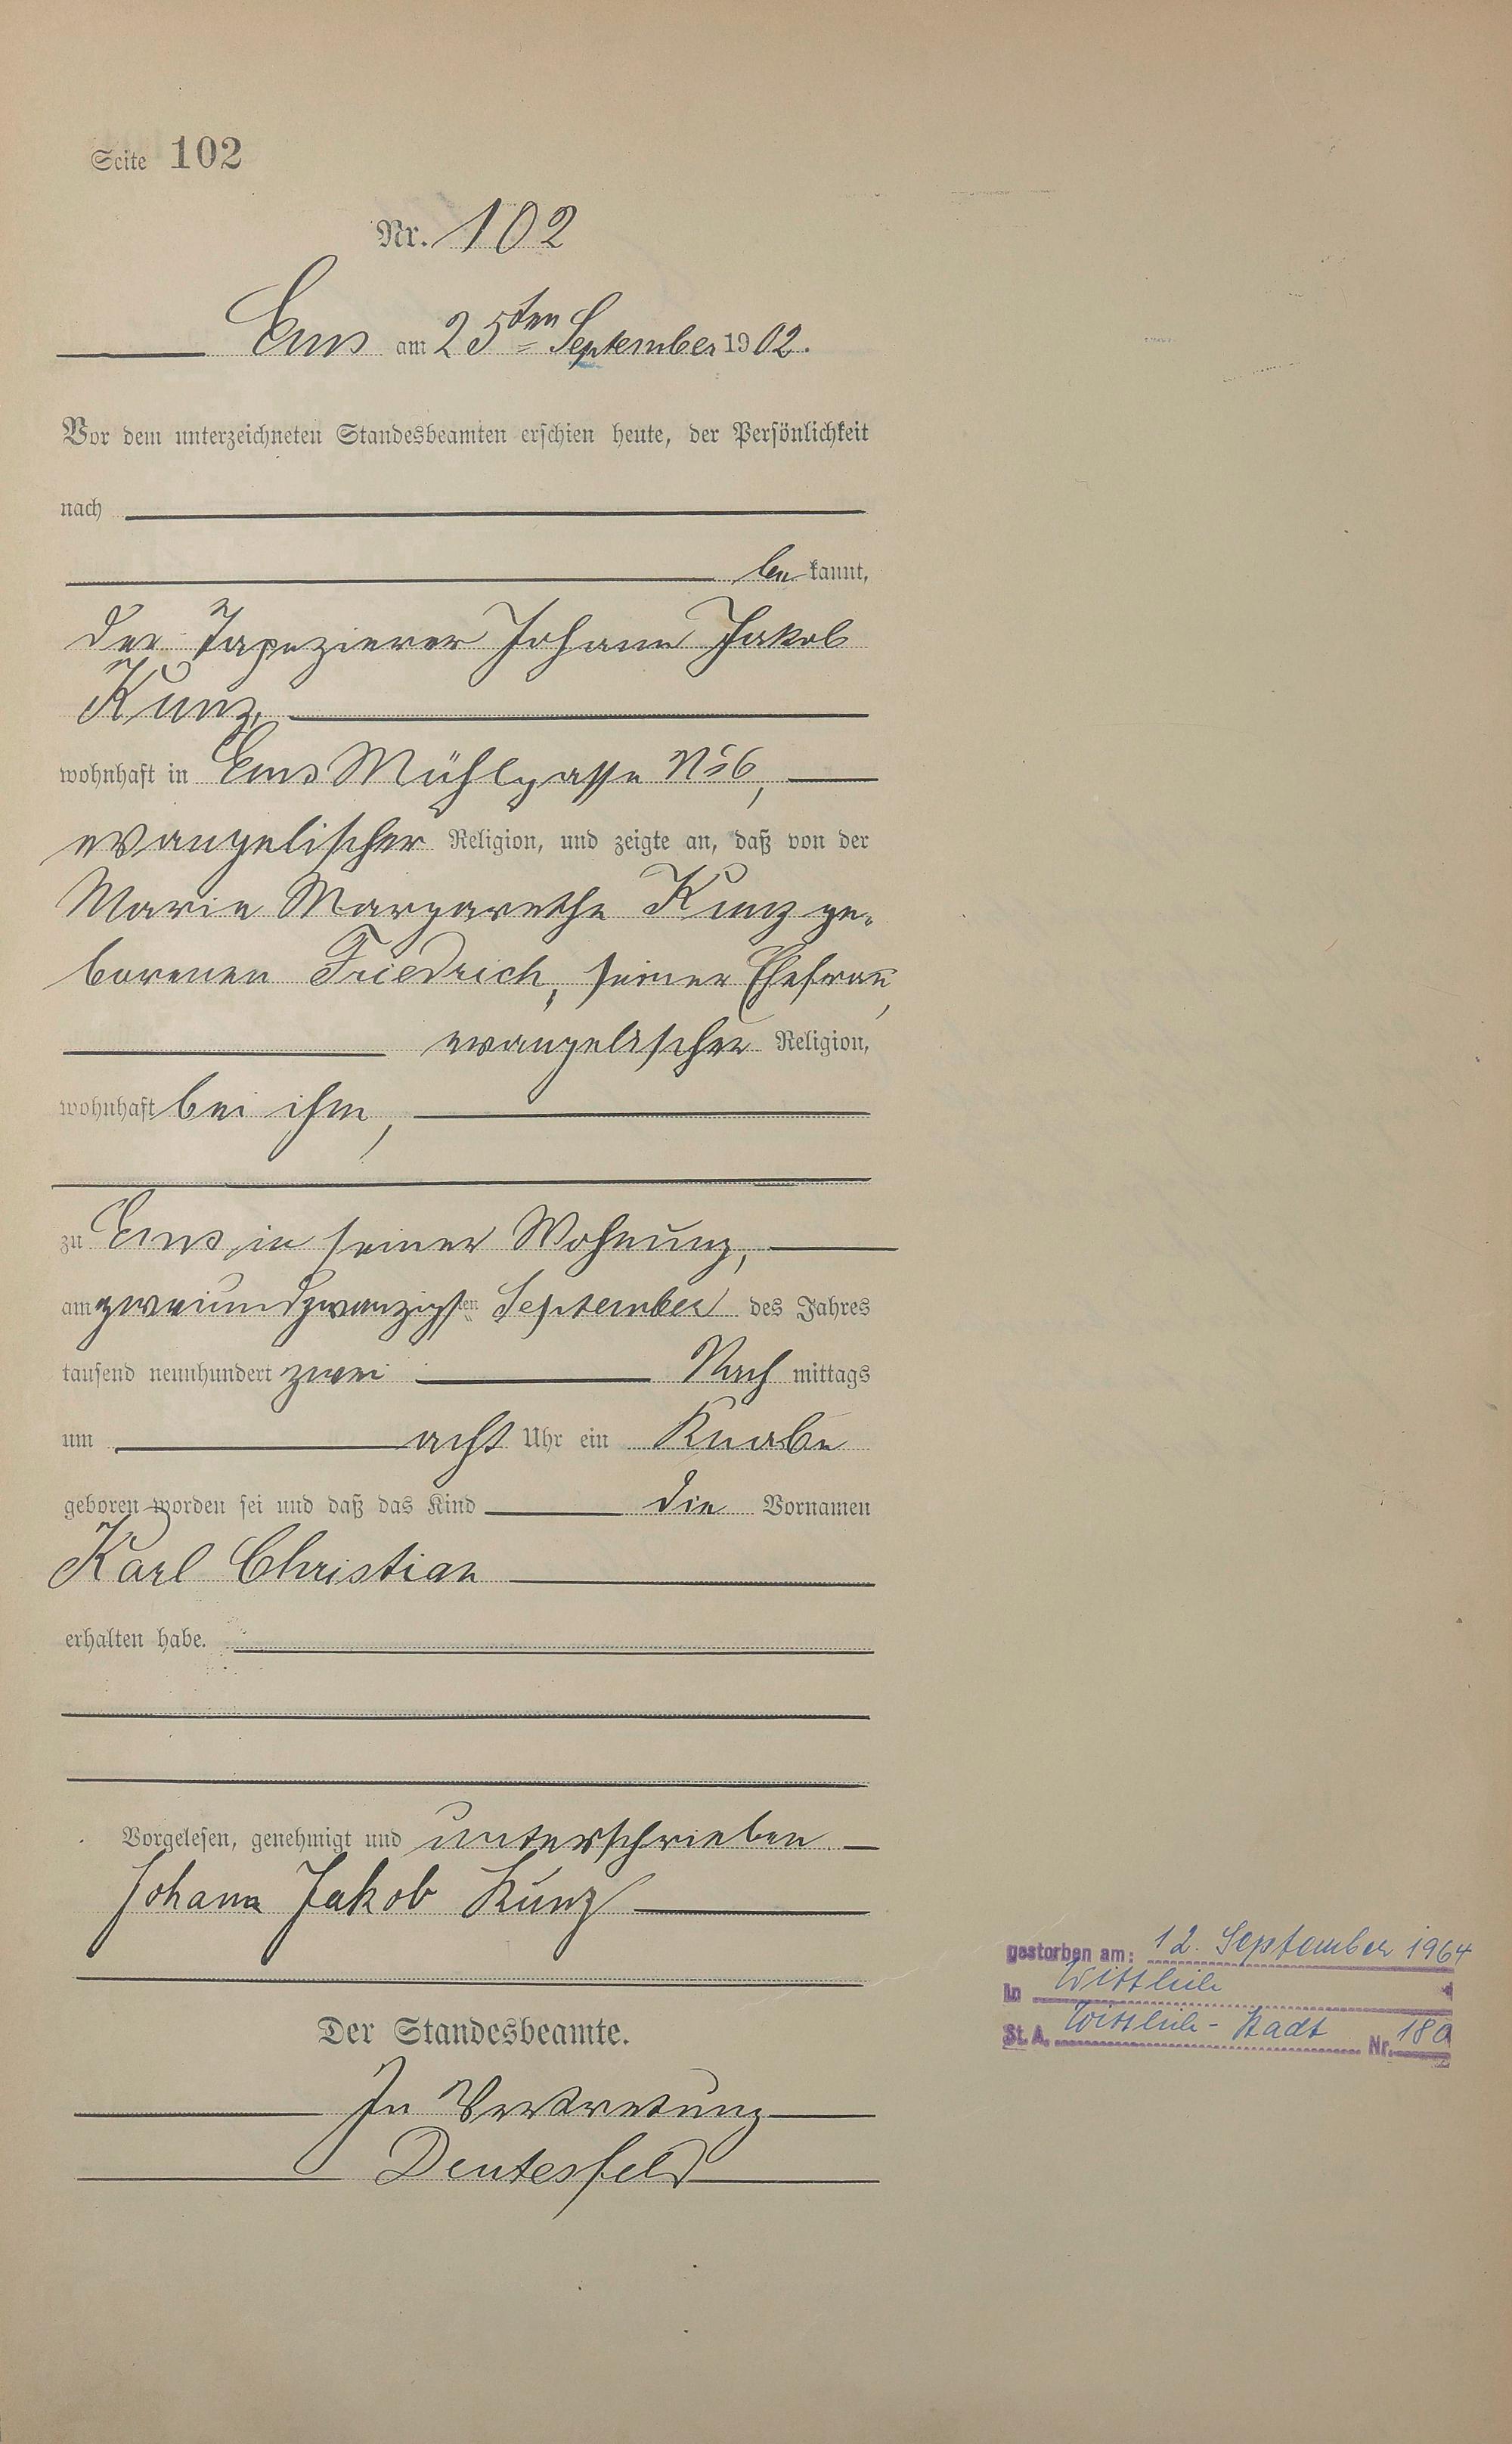 Seite 102
Nr. 102
Ems am 25ten September 1902.
Vor dem unterzeichneten Standesbeamten erschien heute, der Persönlichkeit
nach
be kannt,
der Tapezierer Johann Jakob
Kunz,
wohnhaft in Ems Mühlgasse No 6,
evangelischer Religion, und zeigte an, daß von der
Marie Margarethe Kunz ge-
borenen Friedrich, seiner Ehefrau,
evangelischer Religion,
wohnhaft bei ihm,
zu Ems, in seiner Wohnung,
am zweiundzwanzigsten September des Jahres
tausend neunhundert zwei Nach mittags
um acht Uhr ein Knabe
geboren worden sei und daß das Kind die Vornamen
Karl Christian
erhalten habe.
Vorgelesen, genehmigt und unterschrieben
Johann Jakob Kunz
Der Standesbeamte.
In Vertretung
Deutesfeld
gestorben am: 12. September 1964
in Wittlich
St. A. Wittlich-Stadt Nr. 180